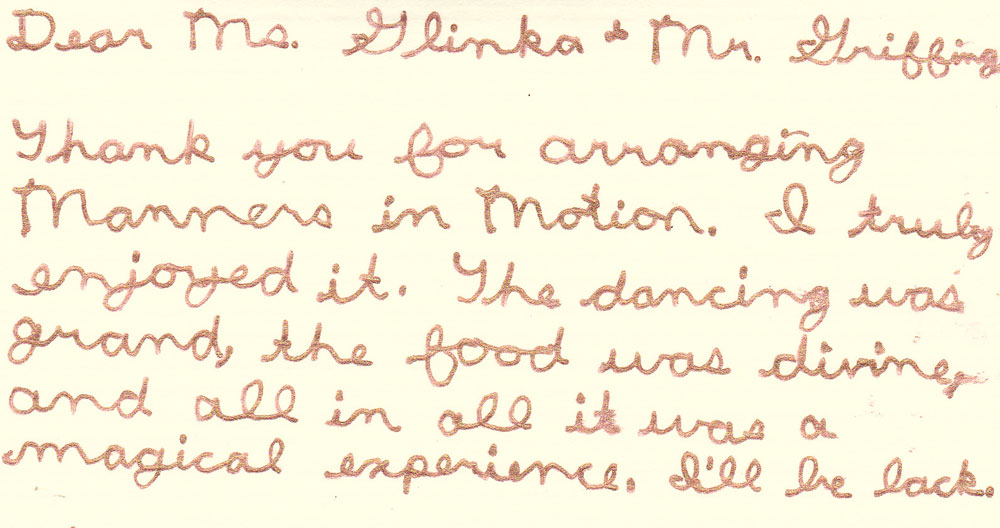 Dear Ms. Glinka & Mr. Griffing
Thank you for arranging
Manners in Motion. I truly
enjoyed it. The dancing was
grand, the food was divine,
and all in all it was a
magical experience. I'll be back.